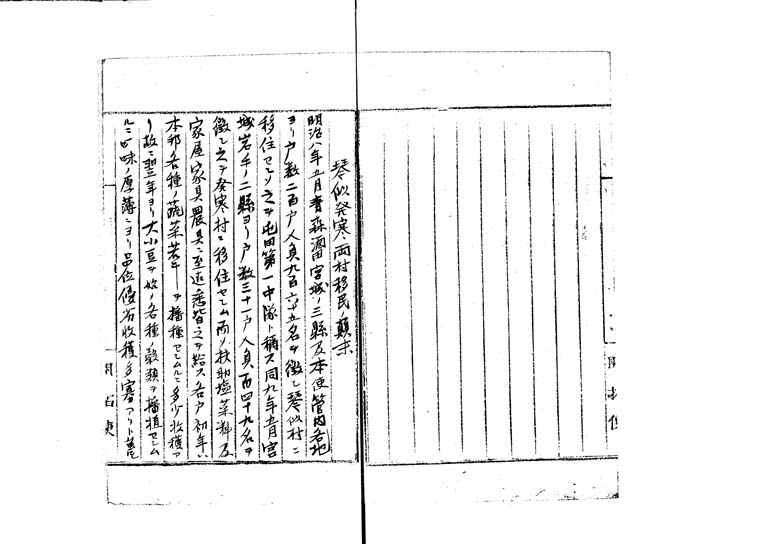 琴似発寒両村移民ノ顛末
明治八年五月青森酒田宮城ノ三縣及本使管内各地
ヨリ戸数二百戸人員九百六十五名ヲ徴シ琴似村ニ
移住セシメ之ヲ屯田第一中隊ト稱ス同九年五月宮
城岩手ノ二縣ヨリ戸数三十一戸人員百四十九名ヲ
徴シ之ヲ発寒村ニ移住セシム而ノ扶助塩菜料及
家屋家具農具ニ至迄悉皆之ヲ給ス各戸初年ハ
本邦各種ノ蔬菜ヲ播種セシムルニ多少收穫ア
リ故ニ翌年ヨリ大小豆ヲ始メ各種ノ穀類ヲ播植セシム
ルニ地味ノ厚薄ニヨリ品位優劣收穫多寡アリト雖
開拓使
開拓使